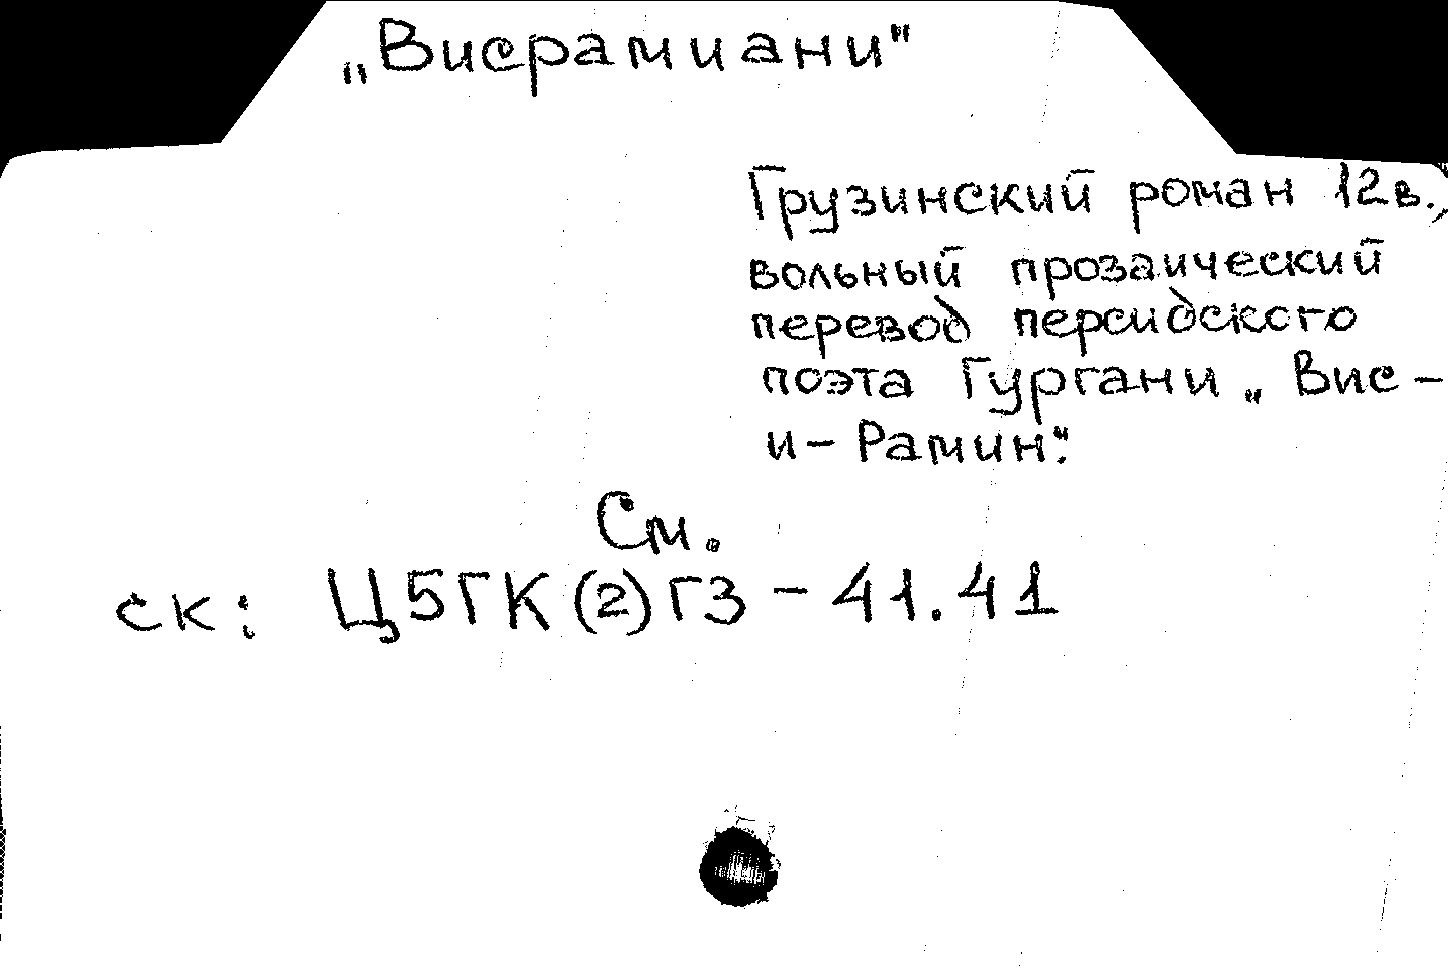 „Висрамиани"
Грузинский роман 12в.,
вольный прозаический
перевод персидского
поэта Гургани „Вис-
и-Рамин".
См.
ск: Ц5ГК(2)Г3-41.41